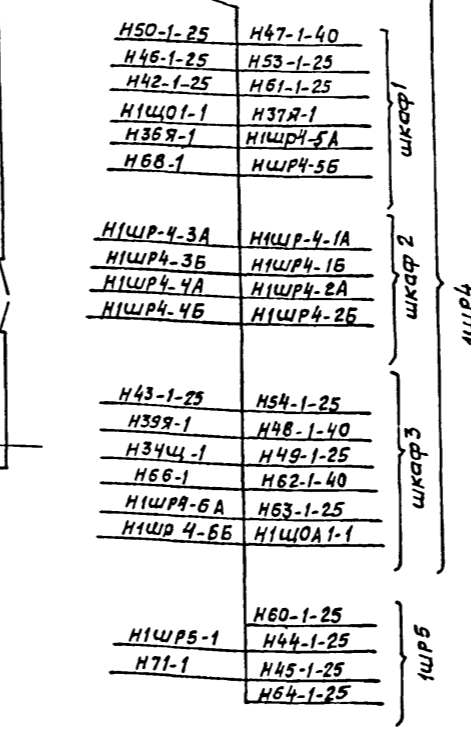 Н50-1-25 Н47-1-40
Н46-1-25 Н53-1-25
Н42-1-25 Н61-1-25
Н1ЩО1-1 Н37Я-1
Н36Я-1 Н1ШР4-5А
Н68-1 НШР4-5Б
шкаф1
Н1ШР-4-3А Н1ШР-4-1А
Н1ШР4-3Б Н1ШР4-1Б
Н1ШР4-4А Н1ШР4-2А
Н1ШР4-4Б Н1ШР4-2Б
шкаф 2
1ШР4
Н43-1-25 Н54-1-25
Н39Я-1 Н48-1-40
Н34Щ-1 Н49-1-25
Н66-1 Н62-1-40
Н1ШР4-6А Н63-1-25
Н1ШР 4-6Б Н1ЩОА1-1
шкаф3
Н60-1-25
Н1ШР5-1 Н44-1-25
Н71-1 Н45-1-25
Н64-1-25
1ШР5